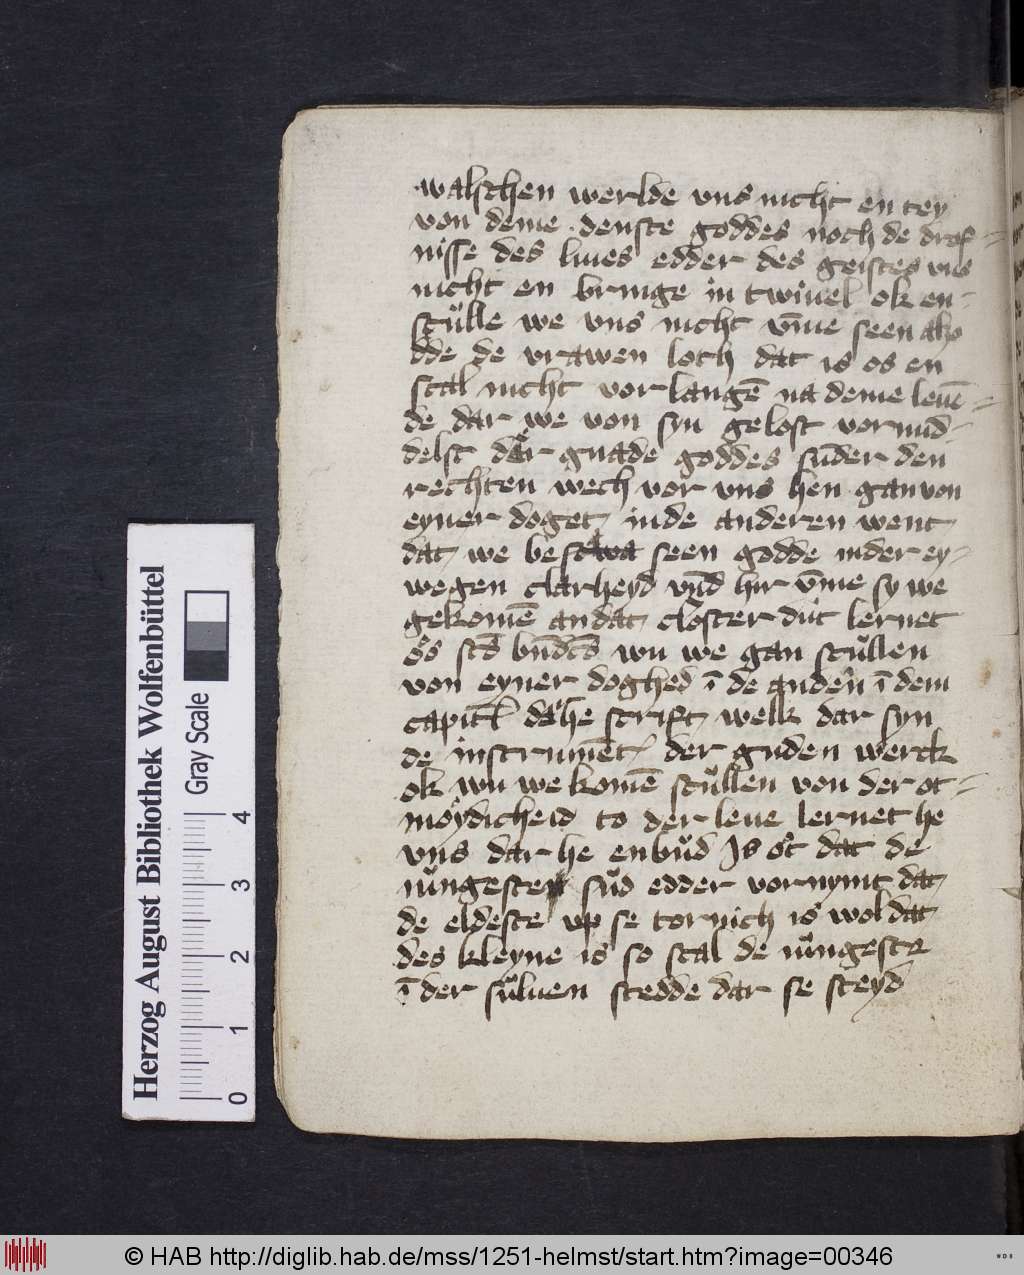 walschen werlde vns nicht en tey
von deme denste goddes noch de drof-
nisse des liues edder des geistes vns
nicht en bringe in twiuel ok en-
scůlle we vns nicht v̄me seen also
dde de vrawen loth dat is os en
scal nicht vorlangē na deme leuē-
de dar we von syn gelost vormid-
delst der gnade goddes sūder den
rechten wech vor vns hen gan von
eyner doget in de anderen went
dat we seen godde in der ey-
wegen clarheyd vn̄d hir v̄me sy we
gekomē an dat closter dut lernet
os sc̄s bn̄dc̄s wu we gan scůllen
von eyner doghed ī de anderē ī dem
capitel da he scrift welk dar syn
de instrumēt der guden werck
ok wu we komē scůllen von der ot-
mȯydicheid to der leue lernet he
vns dar he enbůd Is ȯt dat de
iůngeste sůd edder vornymt dat
de eldeste vp se tornich is wol dat
des kleyne is so scal de iůngeste
ī der sůluen stedde dar se steyd
Herzog August Bibliothek Wolfenbüttel
Gray Scale
0 1 2 3 4
© HAB http://diglib.hab.de/mss/1251-helmst/start.htm?image=00346